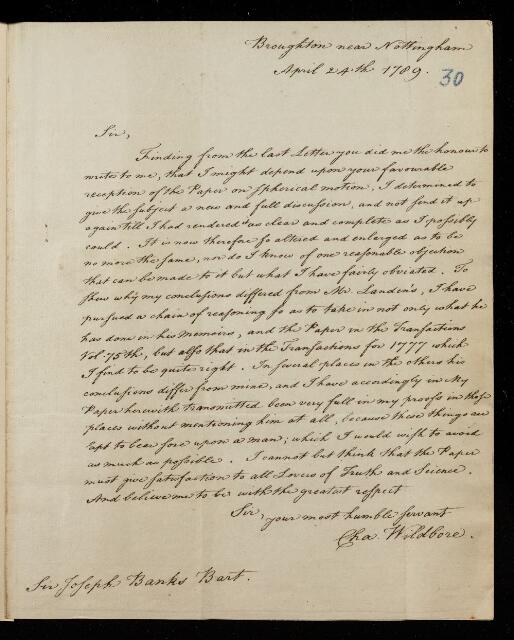 Broughton near Nottingham
April 24th 1789.
30
Sir,
Finding from the last Letter you did me the honour to
write to me, that I might depend upon your favourable
reception of the Paper on spherical motion, I determined to
give the subject a new and full discussion, and not send it up
again till I had rendered it as clear and complete as I possibly
could. It is now therefore so altered and enlarged as to be
no more the same, nor do I know of one reasonable objection
that can be made to it but what I have fairly obviated. To
shew why my conclusions differed from Mr. Landen's, I have
pursued a chain of reasoning so as to take in not only what he
has done in his Memoirs, and the Paper in the Transactions
Vol. 75th, but also that in the Transactions for 1777 which
I find to be quite right. In several places in the others his
conclusions differ from mine, and I have accordingly in my
Paper herewith transmitted been very full in my proofs in those
places without mentioning him at all, because these things are
apt to bear sore upon a man; which I would wish to avoid
as much as possible. I cannot but think that the Paper
must give satisfaction to all Lovers of Truth and Science.
And believe me to be with the greatest respect
Sir, your most humble servant
Cha. Wildbore.
Sir Joseph Banks Bart.